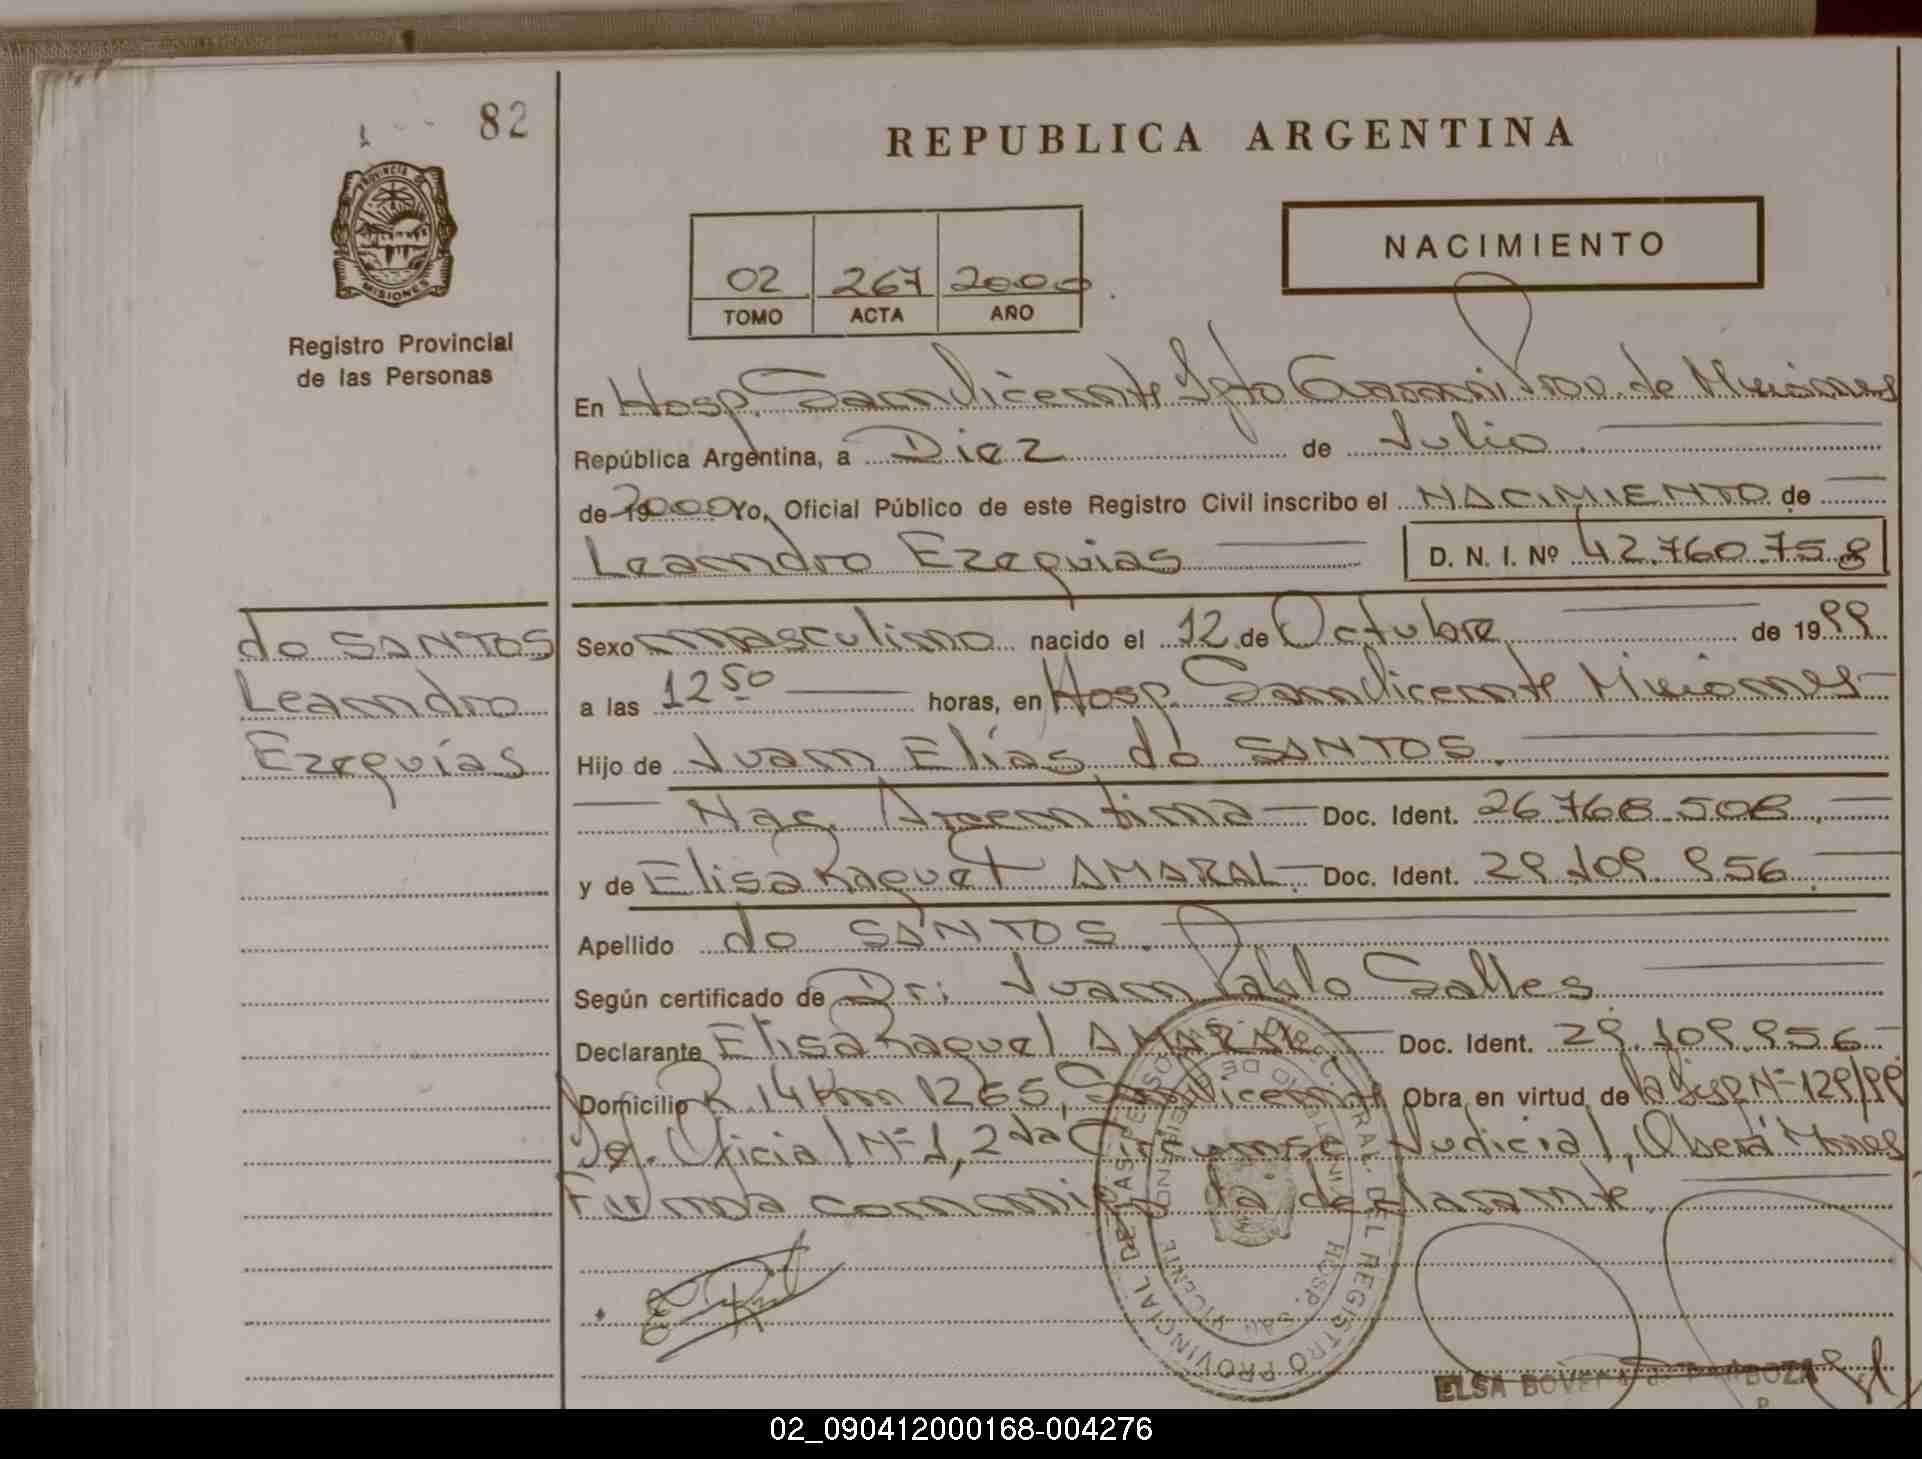 82
REPUBLICA ARGENTINA
PROVINCIA DE
MISIONES
Registro Provincial
de las Personas
02 267 2000
TOMO ACTA AÑO
NACIMIENTO
En Hosp. San Vicente Dpto Guarani Prov. de Misiones
República Argentina, a Diez de Julio
de 19 2000 Yo, Oficial Público de este Registro Civil inscribo el NACIMIENTO de
Leandro Ezequias D. N. I. Nº 42.760.758
do SANTOS
Leandro
Ezequías
Sexo masculino nacido el 12 de Octubre de 1999
a las 12 50 horas, en Hosp. San Vicente Misiones
Hijo de Juan Elías do SANTOS.
Nac. Argentina Doc. Ident. 26.768.508
y de Elisa Raquel AMARAL. Doc. Ident. 29.109.956
Apellido do SANTOS.
Según certificado de Dr. Juan Pablo Salles
Declarante Elisa Raquel AMARAL Doc. Ident. 29.109.956
Domicilio R. 14 Km 1265, San Vicente Obra en virtud de la Disp Nº 129/99
Of. Nº 1, 2da Circunsc. Judicial, Oberá Mnes
Firma conmigo la declarante.
PROVINCIAL DE LAS PERSONAS
DEL REGISTRO
HOSP. SAN VICENTE
ELSA
02_090412000168-004276